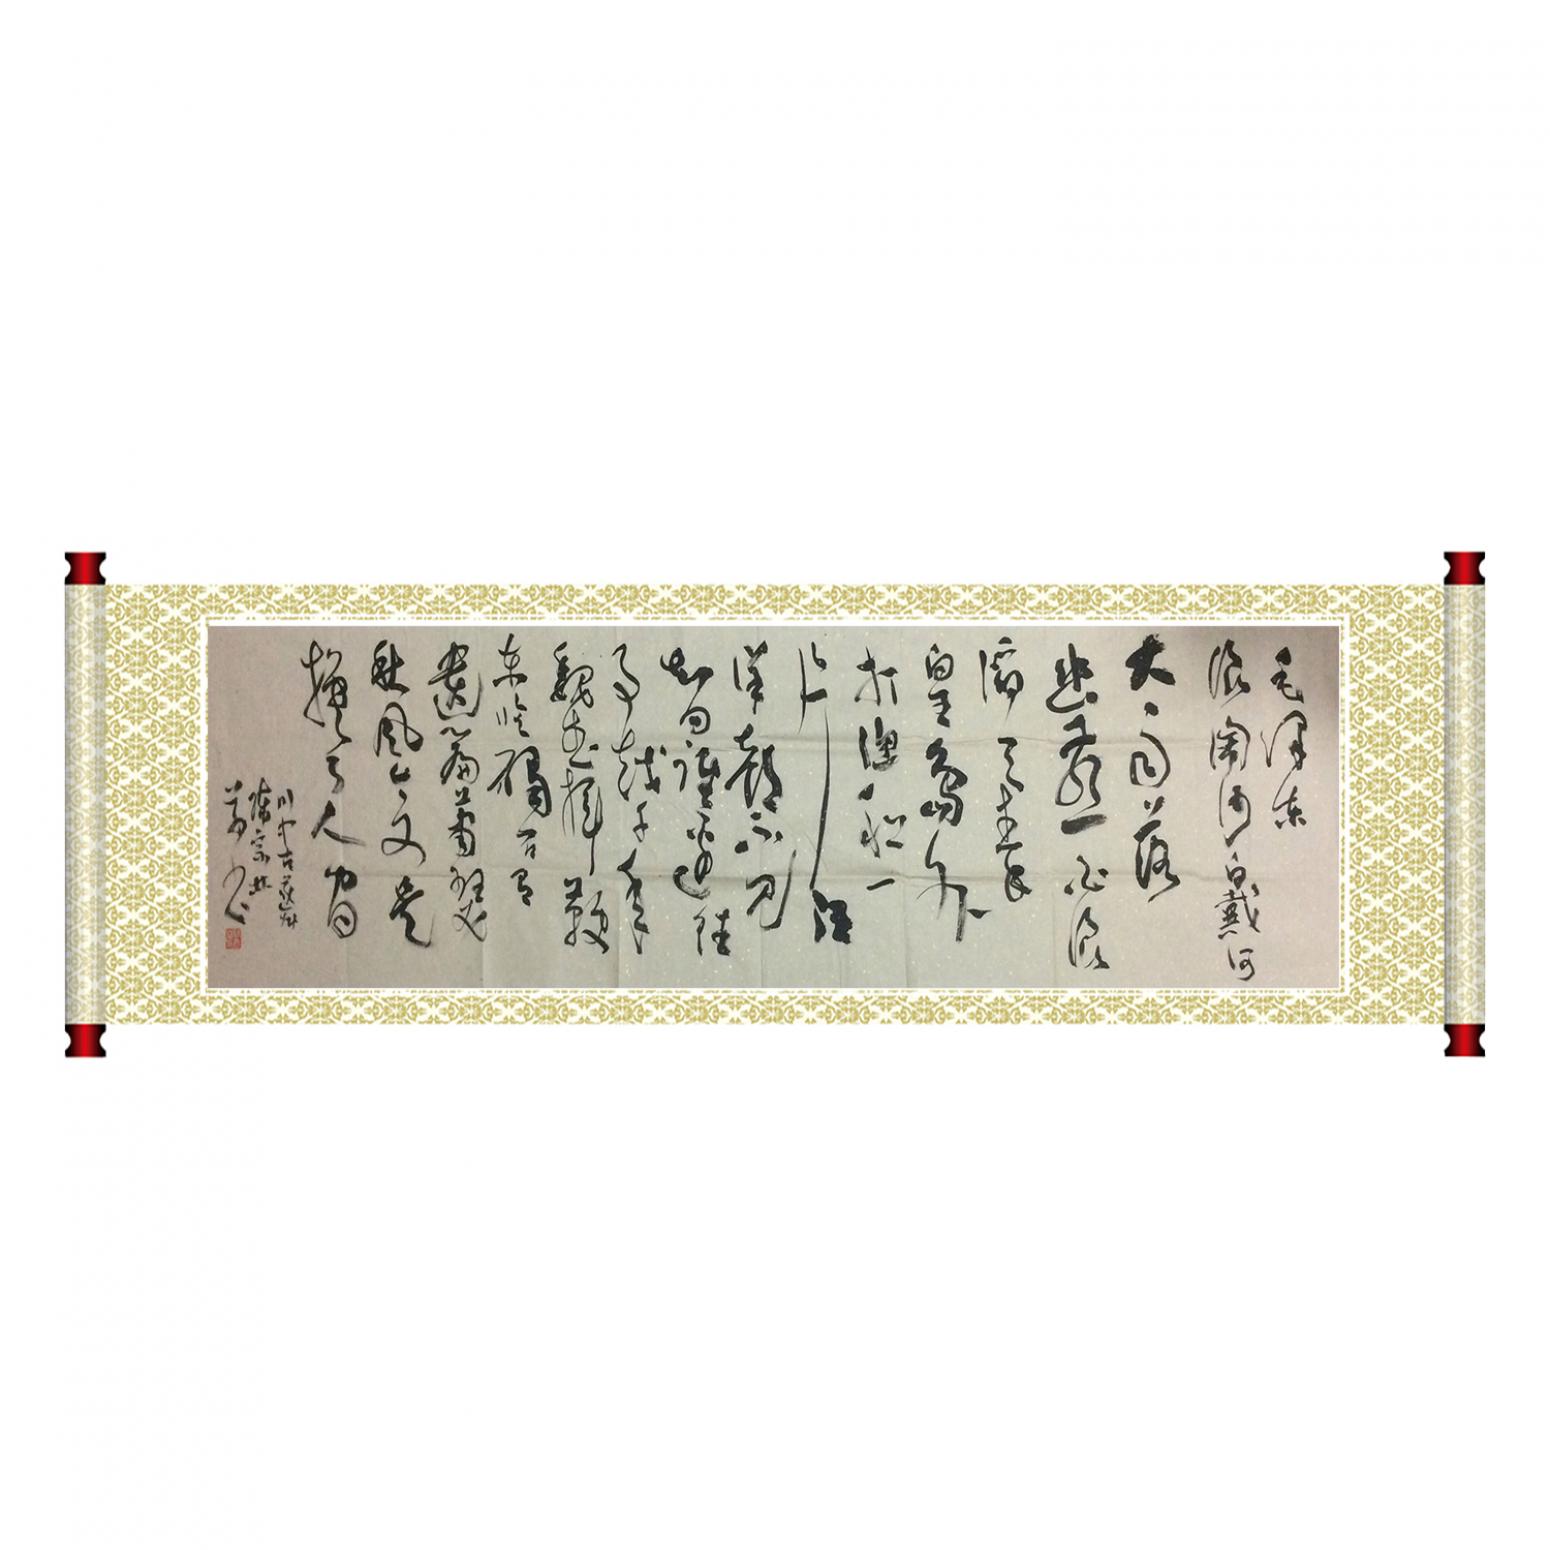 毛泽东
浪淘沙 北戴河
大雨落
幽燕 白浪
滔天秦
皇岛外
打渔船一
片汪
洋都不见
知向谁边往
事越千年
魏武挥鞭
东临碣石有
遗篇萧瑟
秋风今又是
换了人间